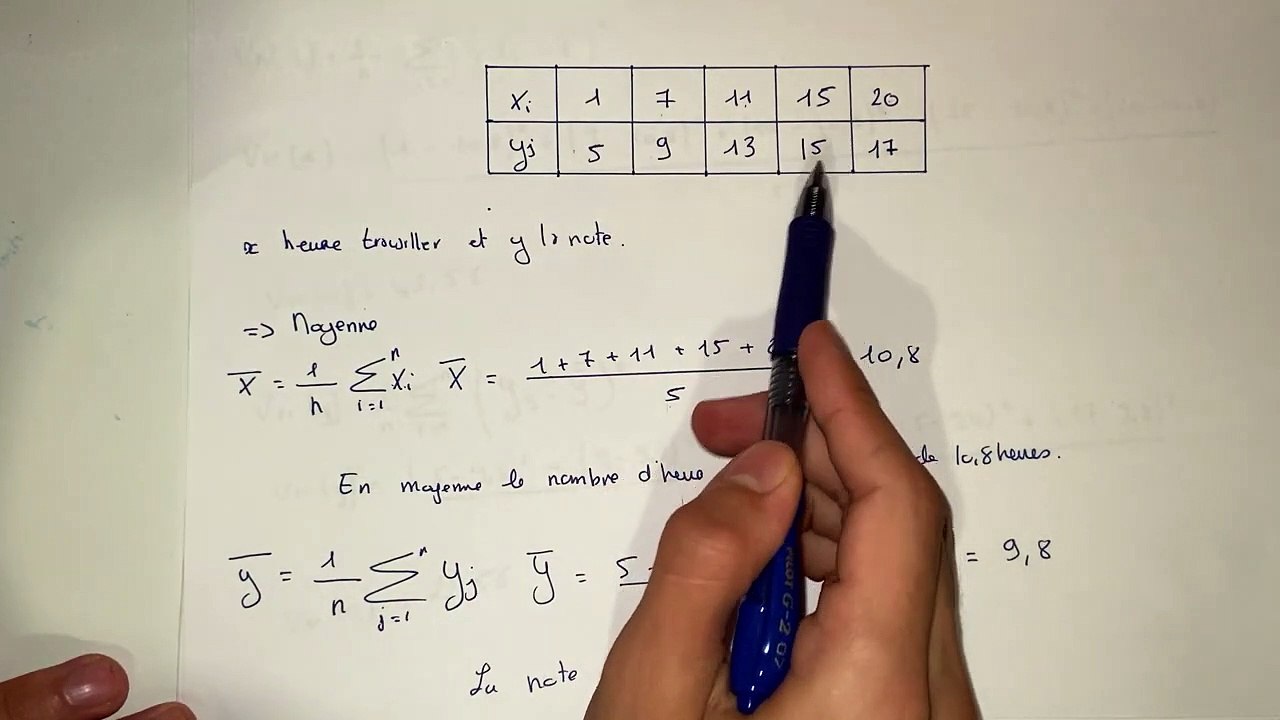 xi 1 7 11 15 20
yj 5 9 13 15 17
x heure travailler et y la note.
=> Moyenne
x̄ = 1/n Σ i=1 n xi x̄ = 1 + 7 + 11 + 15 + / 5 10,8
En moyenne le nombre d'heure de 10,8 heures.
ȳ = 1/n Σ j=1 n yj ȳ = 5 = 9,8
La note
PILOT G-2 07